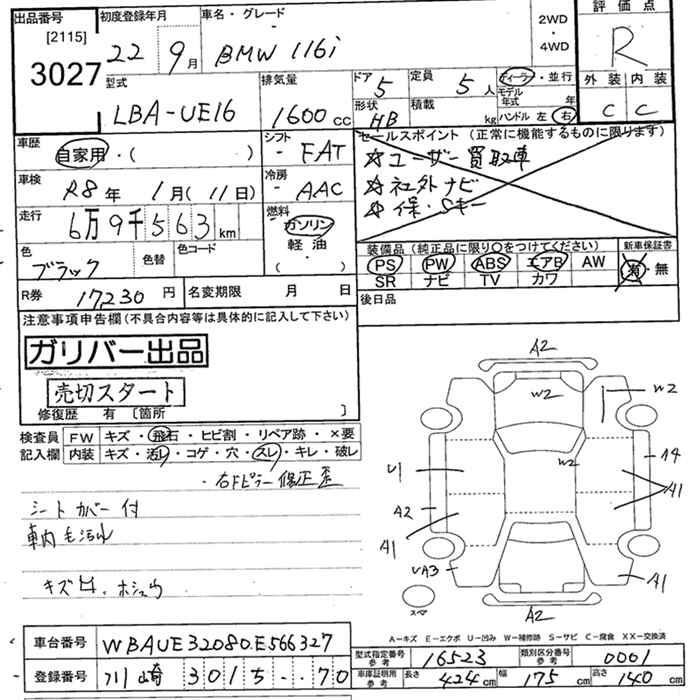 出品番号 [2115] 3027
初度登録年月 22年 9月
車名・グレード BMW 116i
2WD・4WD
評価点 R
外装 C 内装 C
型式 LBA-UE16
排気量 1600cc
ドア 5
形状 HB
定員 5人
積載 kg
ディーラー・並行
モデル年式 年
ハンドル 左 右
車歴 自家用・( )
シフト - FAT
セールスポイント (正常に機能するものに限ります)
☆ユーザー買取車
☆社外ナビ
☆保・Sキー
車検 R8年 1月(11日)
冷房 - AAC
走行 6万9千563km
燃料 ガソリン 軽油 ( )
色 ブラック 色替 色コード
装備品(純正品に限り○をつけてください)
PS PW ABS エアB AW
SR ナビ TV カワ
新車保証書 有・無
R券 17230円 名変期限 月 日
後日品
注意事項申告欄(不具合内容等は具体的に記入して下さい)
ガリバー出品
売切スタート
修復歴 有 [箇所 ]
検査員記入欄
FW キズ・飛石・ヒビ割・リペア跡・×要
内装 キズ・汚レ・コゲ・穴・スレ・キレ・破レ
・右Fピラー 修正歪
シートカバー付
車内毛汚れ
A2
W2
W2
W2
U1
A2
A1
A1
A1
A2
スペア
A-キズ E-エクボ U-凹み W-補修跡 S-サビ C-腐食 XX-交換済
車台番号 WBAUE32080E566327
登録番号 川崎 301 ち ・・70
型式指定番号 参考 16523
類別区分番号 参考 0001
車庫証明用 参考 長さ 424cm 幅 175cm 高さ 140cm